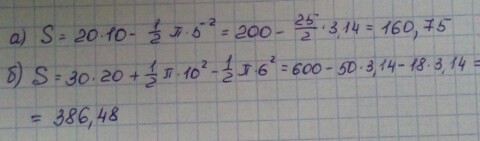 а) S = 20·10 - 1/2 π·5⁻² = 200 - 25/2 · 3,14 = 160,75
б) S = 30·20 + 1/2 π·10² - 1/2 π·6² = 600 - 50·3,14 - 18·3,14 =
= 386,48